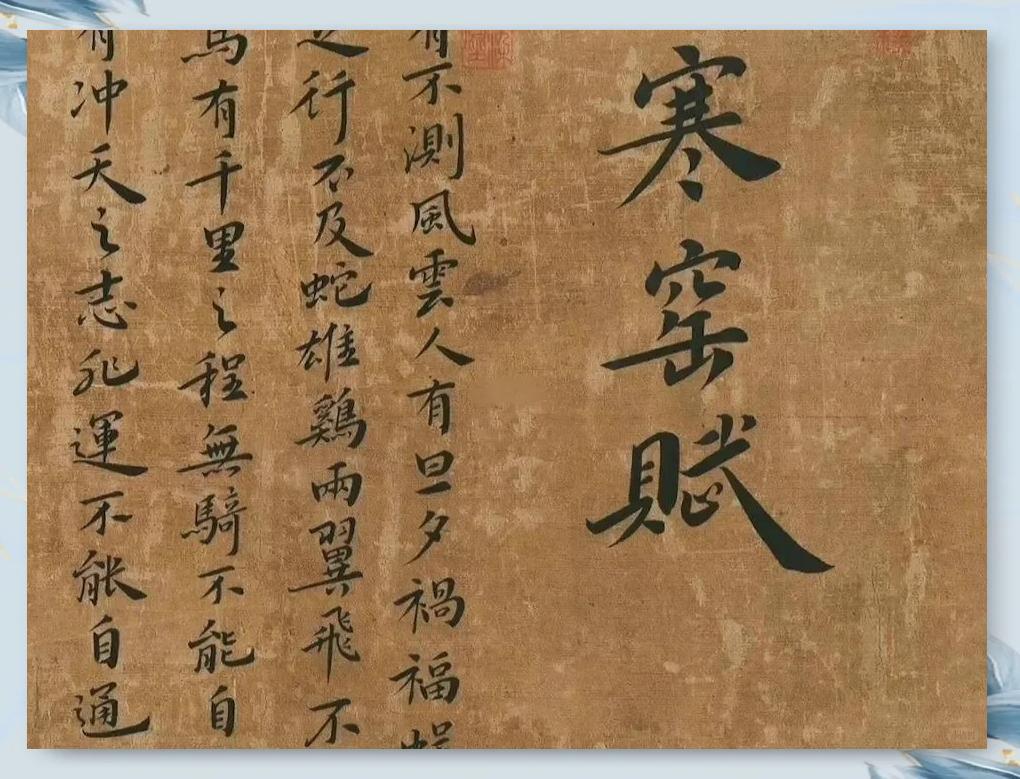 寒窑賦
有不測風雲人有旦夕禍福
行不及蛇雄鷄兩翼飛不
馬有千里之程無騎不能自
有冲天之志非運不能自通